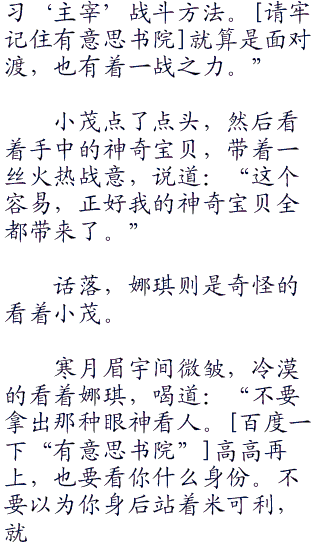 习‘主宰’战斗方法。[请牢
记住有意思书院]就算是面对
渡，也有着一战之力。”
小茂点了点头，然后看
着手中的神奇宝贝，带着一
丝火热战意，说道：“这个
容易，正好我的神奇宝贝全
都带来了。”
话落，娜琪则是奇怪的
看着小茂。
寒月眉宇间微皱，冷漠
的看着娜琪，喝道：“不要
拿出那种眼神看人。[百度一
下“有意思书院”]高高再
上，也要看你什么身份。不
要以为你身后站着米可利，
就